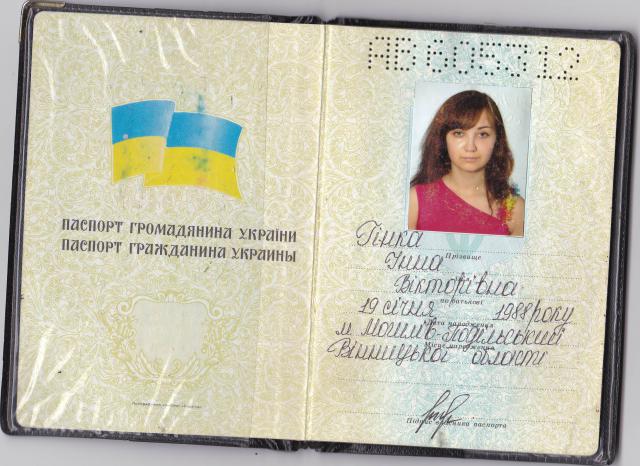 ПАСПОРТ ГРОМАДЯНИНА УКРАЇНИ
ПАСПОРТ ГРАЖДАНИНА УКРАИНЫ
АВ 605312
Гінка
Прізвище
Інна
Вікторівна
по батькові
19 січня 1988 року
Дата народження
м. Могилів-Подільський
Місце народження
Вінницької області
Підпис власника паспорта